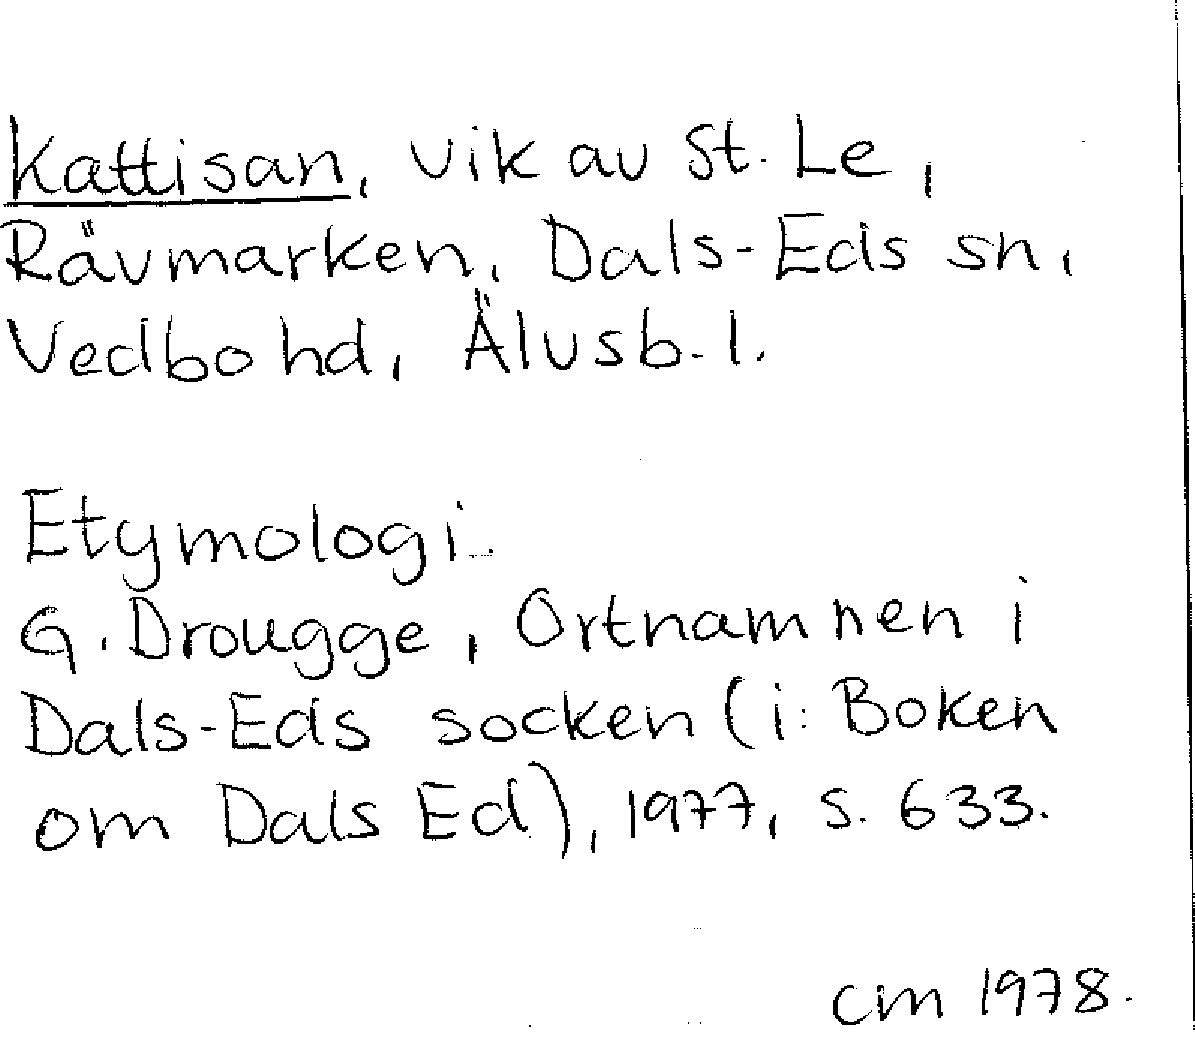 Kattisan, vik av St. Le,
Rävmarken, Dals-Eds sn,
Vedbo hd, Älvsb. l.
Etymologi.
G. Drougge, Ortnamnen i
Dals-Eds socken (i: Boken
om Dals Ed), 1977, s. 633.
CM 1978.